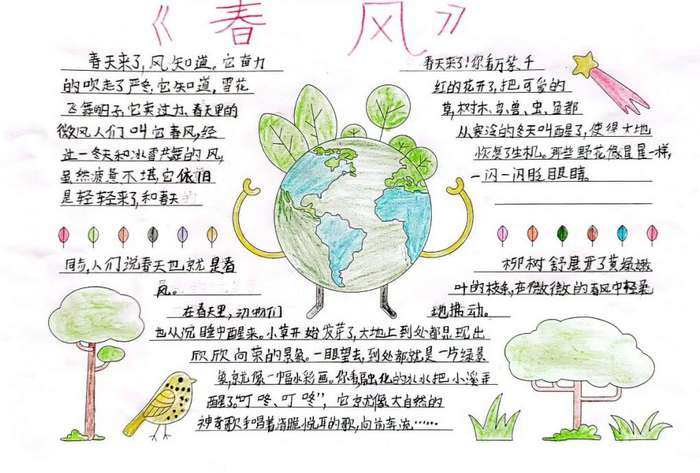 《春风》
春天来了,风知道,它奋力
的吹走了严冬,它知道,雪花
飞舞明子,它卖过力,春天里的
微风人们叫它春风,经
过一冬天和冰雪共舞的风,
虽然疲惫不堪,它依旧
是轻轻来了,和春天
同步,人们说春天也就是春
风。
春天来了!你看万紫千
红的花开了,把可爱的
草,树木、鸟、兽、虫、鱼都
从寒冷的冬天叫醒了,使得大地
恢复了生机。那些野花像星星一样,
一闪一闪眨眼睛。
柳树舒展开了黄绿嫩
叶的枝条,在微微的春风中轻柔
地拂动。
在春天里,动物们
也从沉睡中醒来。小草开始发芽了,大地上到处都显现出
欣欣向荣的景象。一眼望去,到处都就是一片绿景
象,就像一幅水彩画。你看,融化的冰水把小溪弄
醒了。"叮咚、叮咚",它就像大自然的
神奇歌手唱着清脆悦耳的歌,向前奔流……